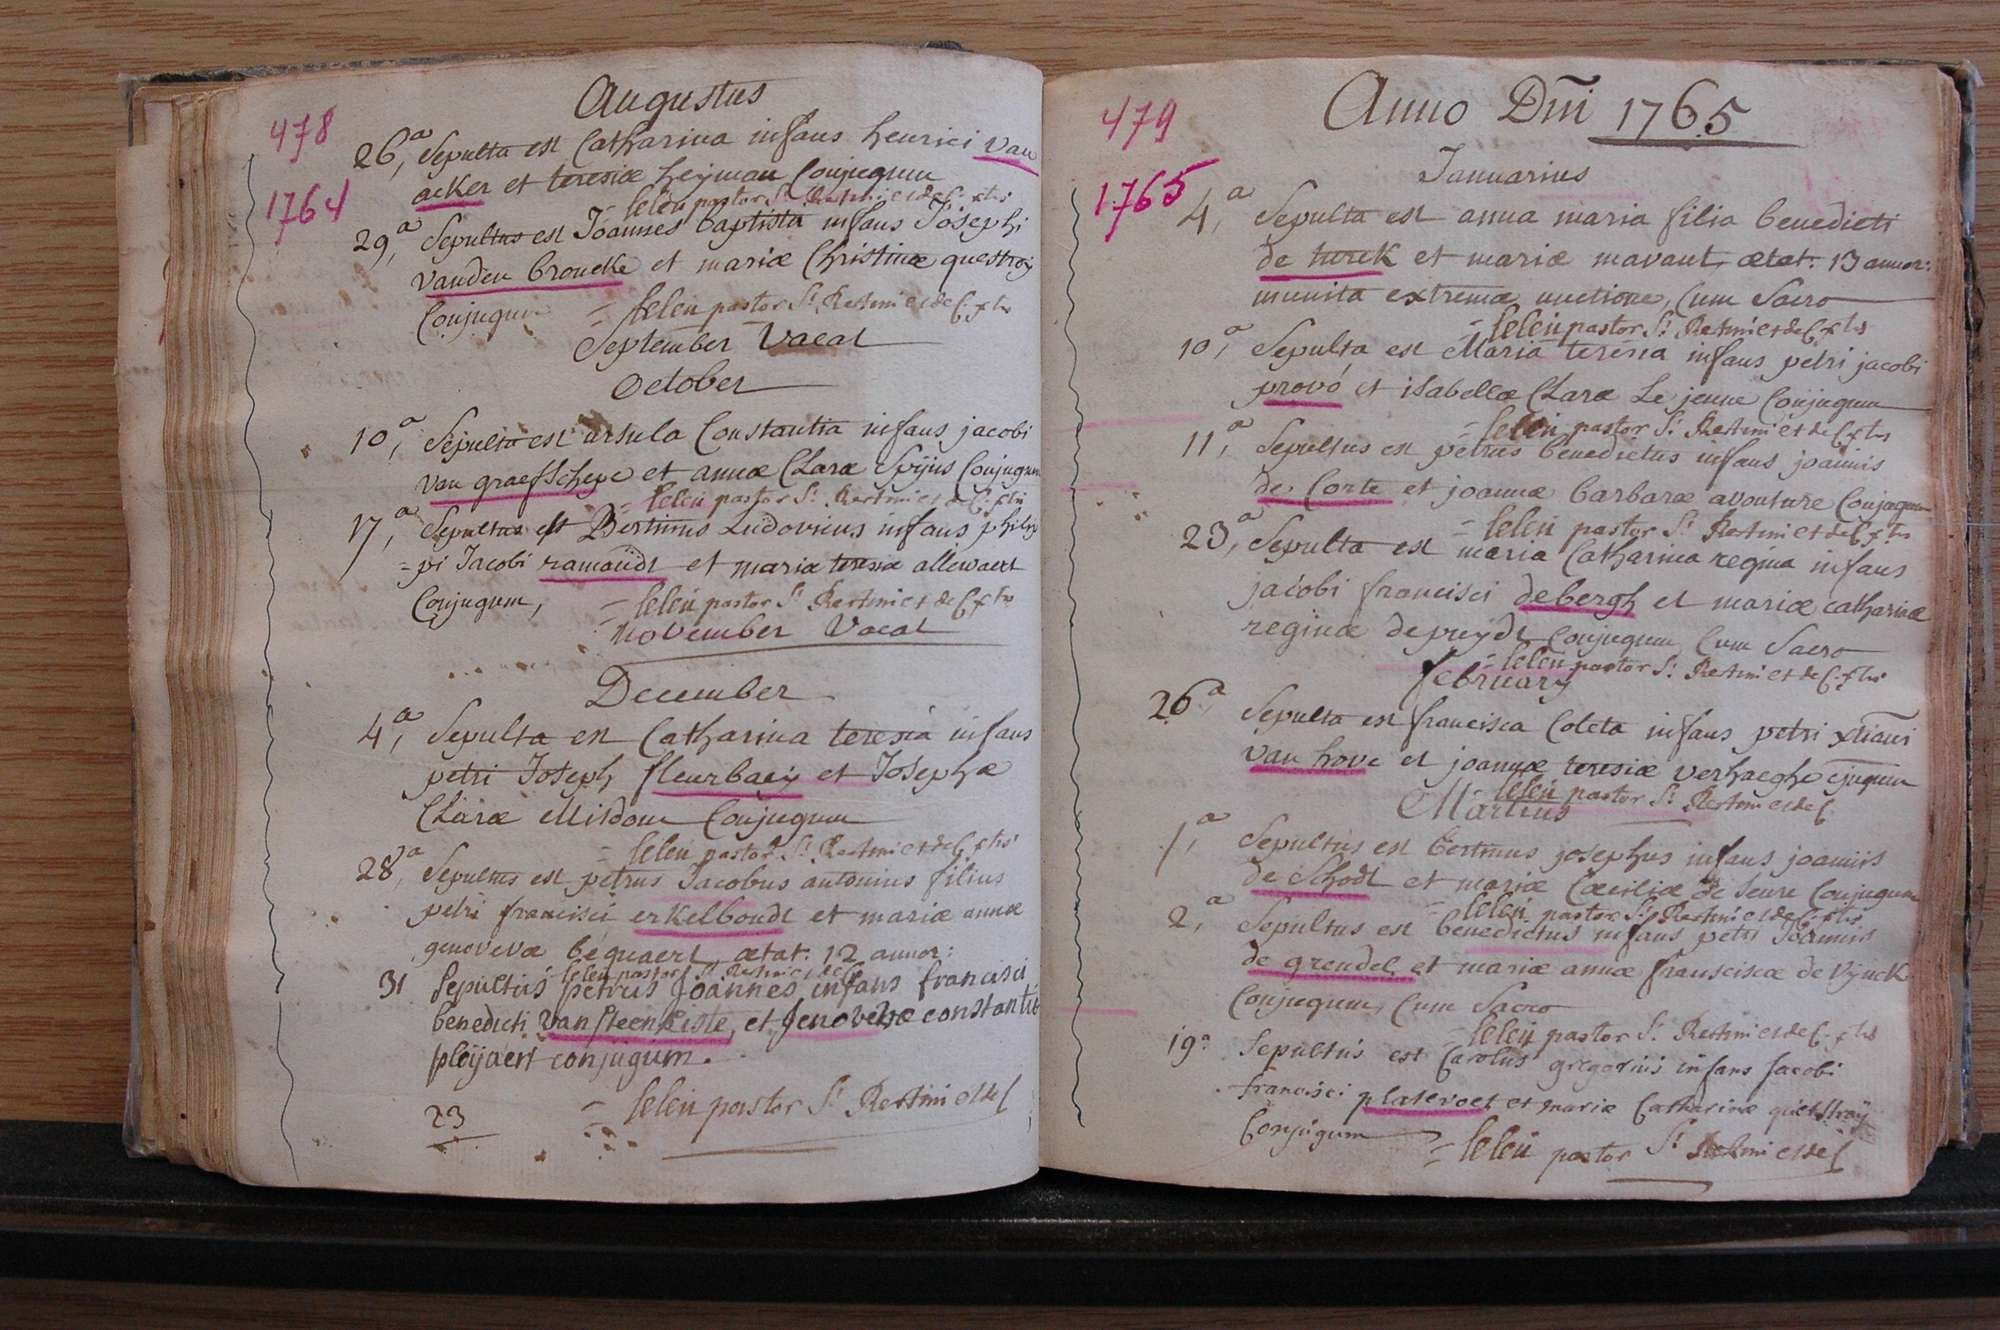 478
1764
Augustus
26,ª Sepulta est Catharina infans henrici van
acker et teresiæ heyman Conjugum
leleu pastor St. Bertini et de C. xtis
29,ª Sepultus est Joannes baptista infans Josephi
vanden broucke et mariæ Christinæ questroy
Conjugum = leleu pastor St. Bertini et de C. xtis
September Vacat
October
10,ª Sepulta est ursula Constantia infans jacobi
van graefschepe et annæ Claræ Spijns Conjugum
= leleu pastor St. Bertini et de C. xtis
17,ª Sepultus est Bertinus Ludovicus infans philip
=pi Jacobi ramoudt et mariæ teresiæ allewaert
Conjugum, = leleu pastor St. Bertini et de C. xtis
November Vacat
December
4,ª Sepulta est Catharina teresia infans
petri Joseph fleurbaey et Josephæ
Claræ Misdom Conjugum
= leleu pastor St. Bertini et de C. xtis
28,ª Sepultus est petrus Jacobus antonius filius
petri francisci erkelboudt et mariæ annæ
genovevæ bequaert, ætat: 12 annor:
leleu pastor St. Bertini et de C
31 Sepultus petrus Joannes infans francisci
benedicti van steenkiste, et Jenovevæ constantiæ
pleyaert conjugum.
23 = leleu pastor St. Bertini et de C
479
1765
Anno Dni 1765
Januarius
4,ª Sepulta est anna maria filia benedicti
de turck et mariæ mavaut, ætat: 13 annor:
munita extrema unctione, Cum Sacro
= leleu pastor St. Bertini et de C. xtis
10,ª Sepulta est Maria teresia infans petri jacobi
provó et isabellæ Claræ Le jeune Conjugum
= leleu pastor St. Bertini et de C. xtis
11,ª Sepultus est petrus benedictus infans joannis
de Corte et joannæ barbaræ avonture Conjugum
= leleu pastor St. Bertini et de C. xtis
23,ª Sepulta est maria Catharina regina infans
jacobi francisci debergh et mariæ catharinæ
reginæ depreydt Conjugum, Cum Sacro
= leleu pastor St. Bertini et de C. xtis
february
26,ª Sepulta est francisca Coleta infans petri xtiani
van hove et joannæ teresiæ verhaeghe cjugum
leleu pastor St. Bertini et de C
Martius
1,ª Sepultus est Bertinus josephus infans joannis
de Schodt et mariæ Cæciliæ de Seure Conjugum
= leleu pastor St. Bertini et de C. xtis
2,ª Sepultus est benedictus infans petri Joannis
de grendel et mariæ annæ fransciscæ de Vijnck
Conjugum, Cum Sacro
= leleu pastor St. Bertini et de C. xtis
19ª Sepultus est Carolus gregorius infans Jacobi
francisci platevoet et mariæ Catharinæ questroy
Conjugum
= leleu pastor St. Bertini et de C